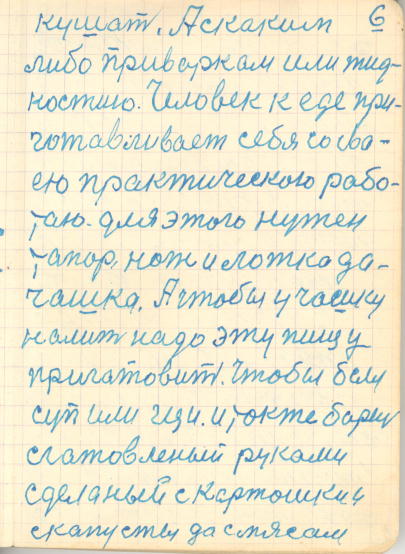 6
кушат. А скаким
либо приваркам или жид-
костию. Человек к еде при-
готавливает себя со сва-
ею практического рабо-
таю. для этого нужен
тапор. нож и ложка да-
чашка. А чтобы у чашку
налит надо эту пищу
пригатовит. Чтобы был
суп или щи. и також борщ
сгатовленый руками
сделаный с картошки и
скапусты да смясам